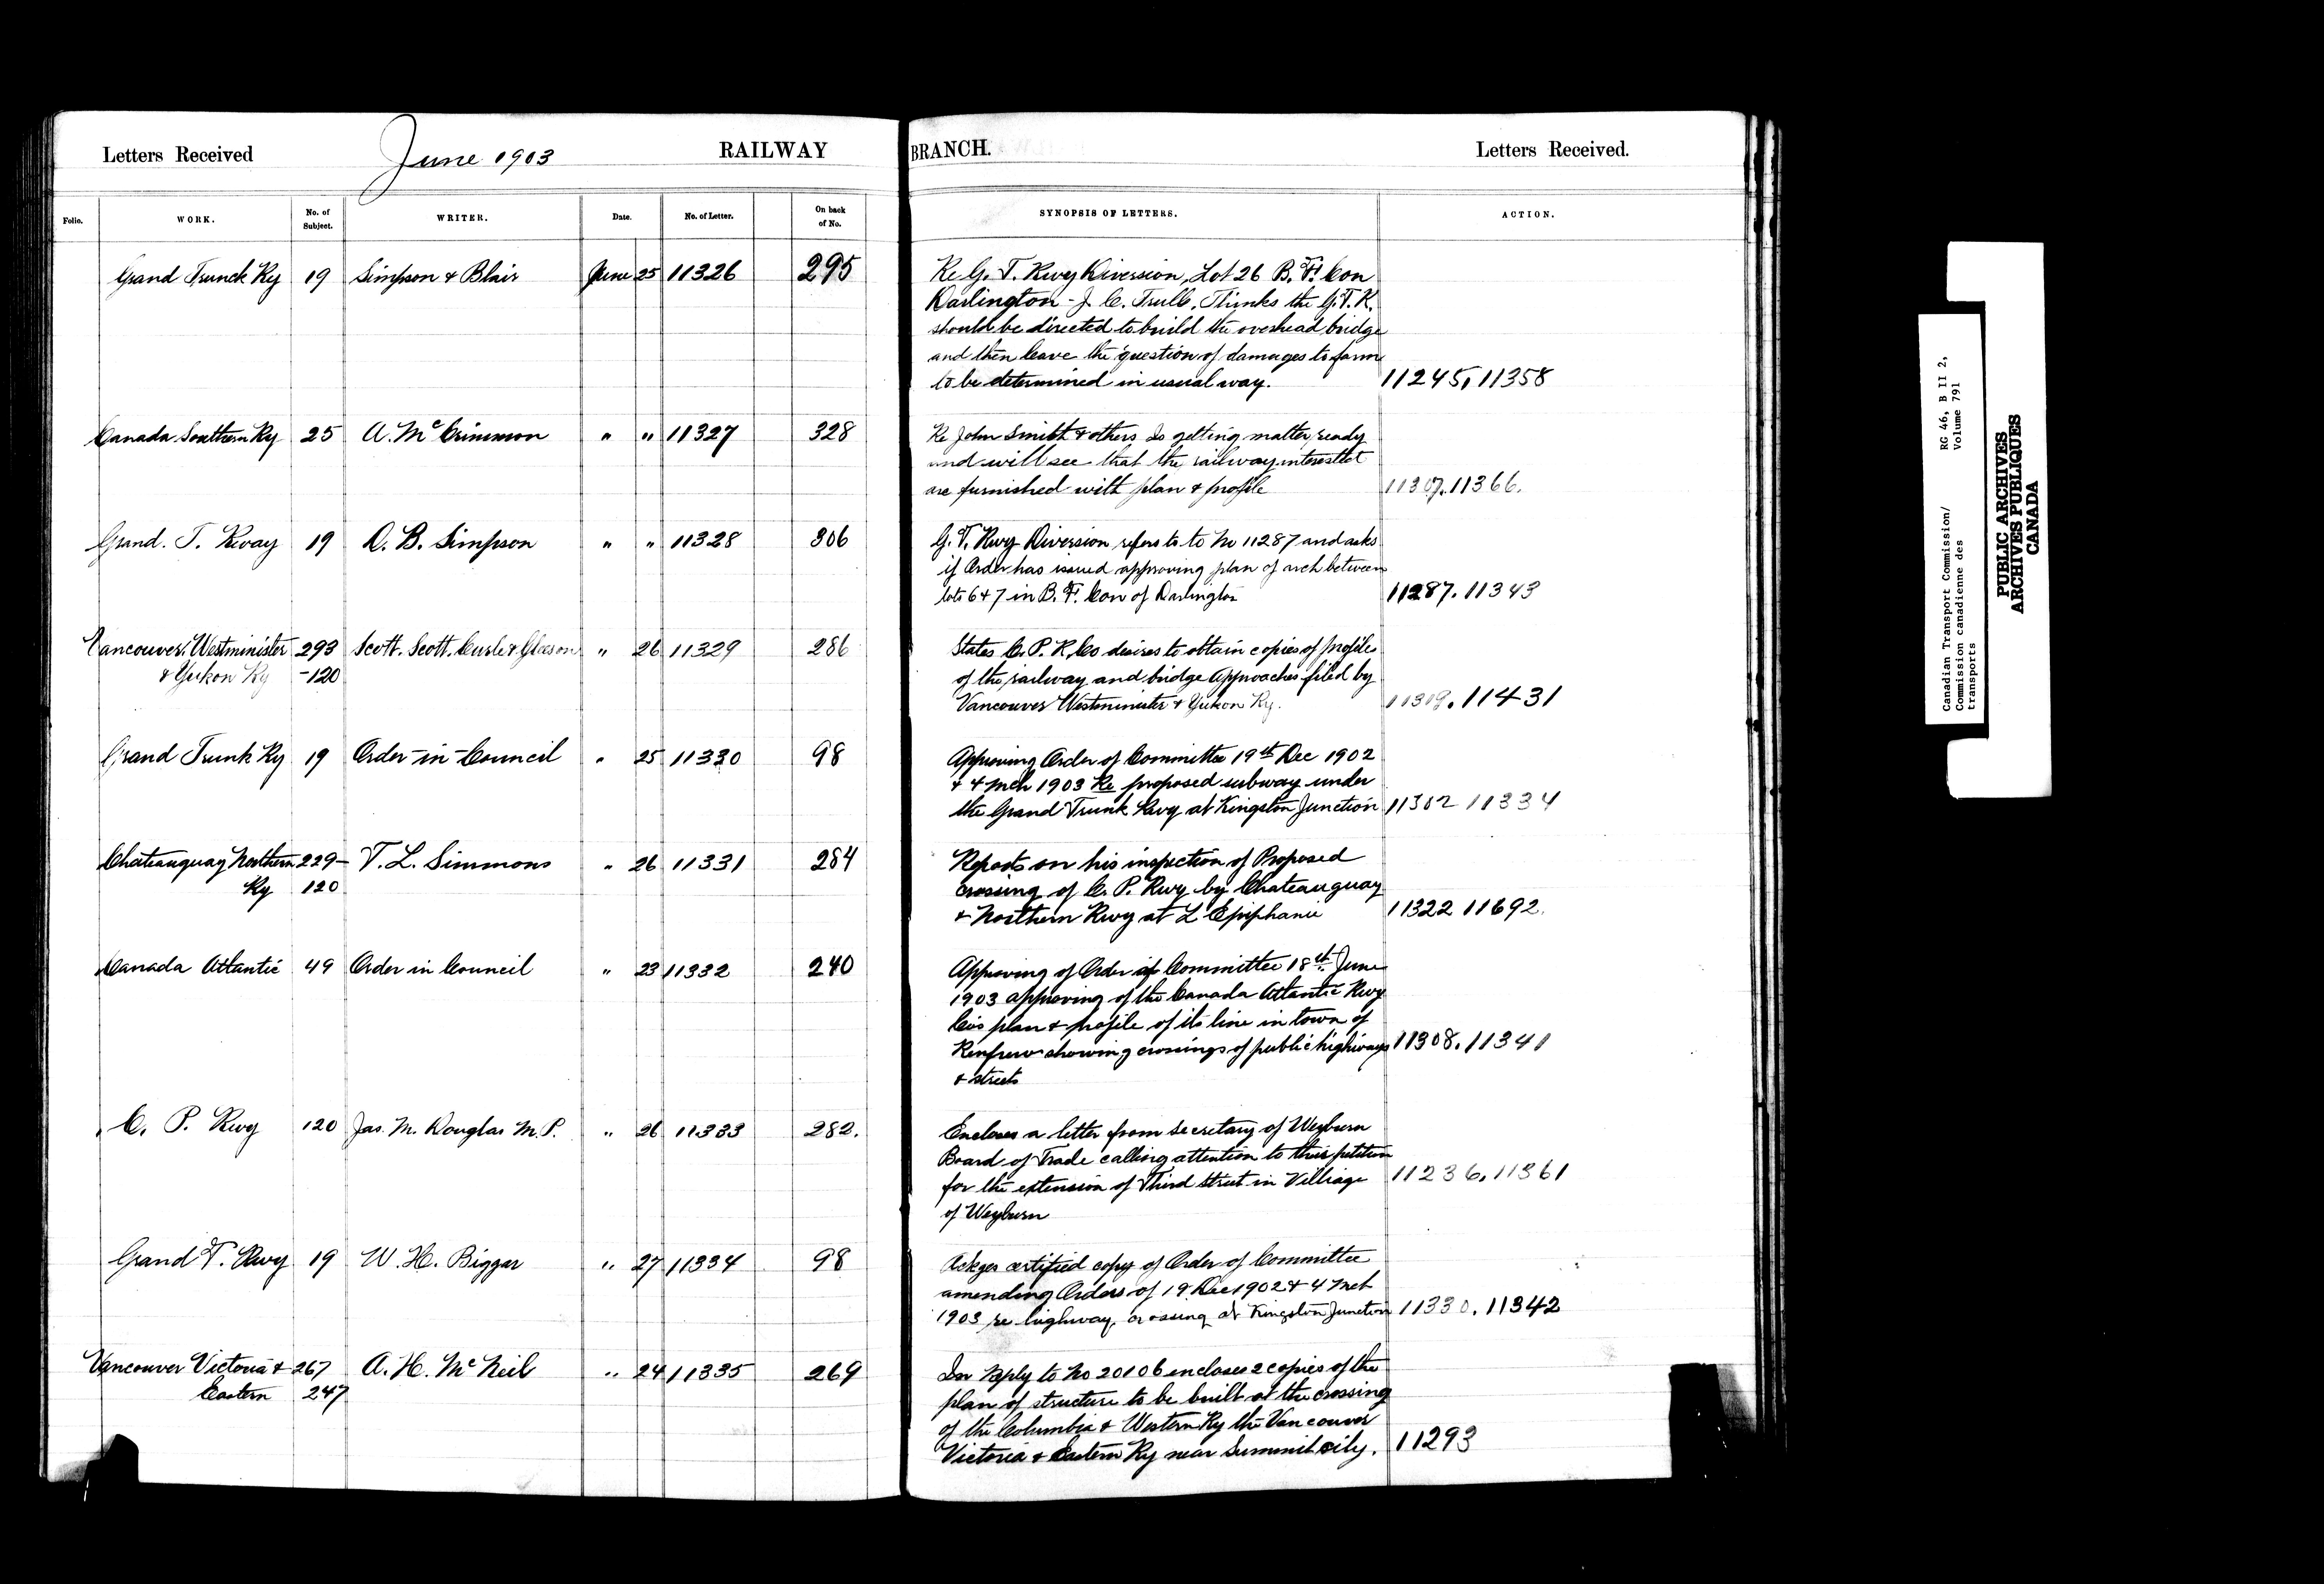 Letters Received June 1903 RAILWAY BRANCH. Letters Received.
Folio. WORK. No. of Subject. WRITER. Date. No. of Letter. On back of No. SYNOPSIS OF LETTERS. ACTION.
Grand Trunck Ry 19 Simpson & Blair June 25 11326 295 Re G. T. Rwy Diversion, Lot 26 B. F. Con
Darlington - J. C. Trull, Thinks the G. T. R.
should be directed to build the overhead bridge
and then leave the question of damages to farm
to be determined in usual way. 11245, 11358
Canada Southern Ry 25 A. McCrimmon " " 11327 328 Re John Smith & others Is getting matter ready
and will see that the railway interested
are furnished with plan & profile 11307. 11366.
Grand. T. Rway 19 D. B. Simpson " " 11328 306 G. T. Rwy Diversion refers to to No 11287 and asks
if Order has issued approving plan of arch between
lots 6 & 7 in B. F. Con of Darlington 11287. 11343
Vancouver, Westminister 293 Scott. Scott. Curle & Gleeson " 26 11329 286 States C. P. R. Co desires to obtain copies of profiles
& Yukon Ry -120 of the railway and bridge approaches filed by
Vancouver Westminister & Yukon Ry. 11319. 11431
Grand Trunk Ry 19 Order-in-Council " 25 11330 98 Approving Order of Committee 19th Dec 1902
& 4 Mch 1903 Re proposed subway under
the Grand Trunk Rwy at Kingston Junction 11302 11334
Chateauguay Northern 229- T. L. Simmons " 26 11331 284 Reports on his inspection of Proposed
Ry 120 crossing of C. P. Rwy by Chateauguay
& Northern Rwy at L Epiphanie 11322 11692.
Canada Atlantic 49 Order in Council " 23 11332 240 Approving of Order of Committee 18th June
1903 approving of the Canada Atlantic Rwy
Co's plan & profile of its line in town of
Renfrew showing crossings of public highways 11308. 11341
& streets
C. P. Rwy 120 Jas. M. Douglas M. P. " 26 11333 282. Encloses a letter from secretary of Weyburn
Board of Trade calling attention to their petition
for the extension of Third Street in Villiage 11236. 11361
of Weyburn
Grand T. Rwy 19 W. H. Biggar " 27 11334 98 Ackges certified copy of Order of Committee
amending Orders of 19 Dec 1902 & 4 Mch
1903 re highway crossing at Kingston Junction 11330. 11342
Vancouver Victoria & 267 A. H. McNeil " 24 11335 269 In Reply to No 20106 encloses 2 copies of the
Eastern 247 plan of structure to be built at the crossing
of the Columbia & Western Ry the Vancouver
Victoria & Eastern Ry near Summit city. 11293
Canadian Transport Commission/ RG 46, B II 2,
Commission canadienne des Volume 791
transports
PUBLIC ARCHIVES
ARCHIVES PUBLIQUES
CANADA